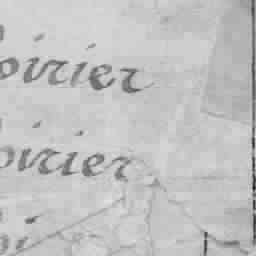 oirier
oirier
oi